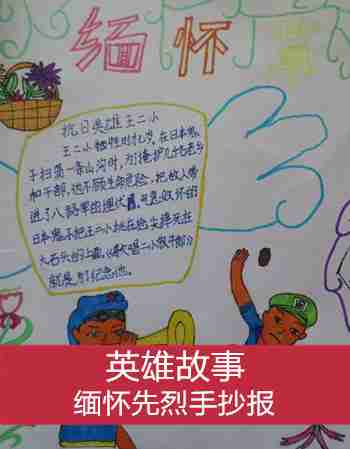 缅怀
抗日英雄王二小
王二小牺牲时 岁,在日本鬼
子扫荡一条山沟时,为掩护几千名老乡
和干部,他不顾生命危险,把敌人带
进了八路军的埋伏圈,气急败坏的
日本鬼把王二小挑在枪尖摔死在
大石头的上面,《歌唱二小放牛郎》
就是为纪念他。
英雄故事
缅怀先烈手抄报